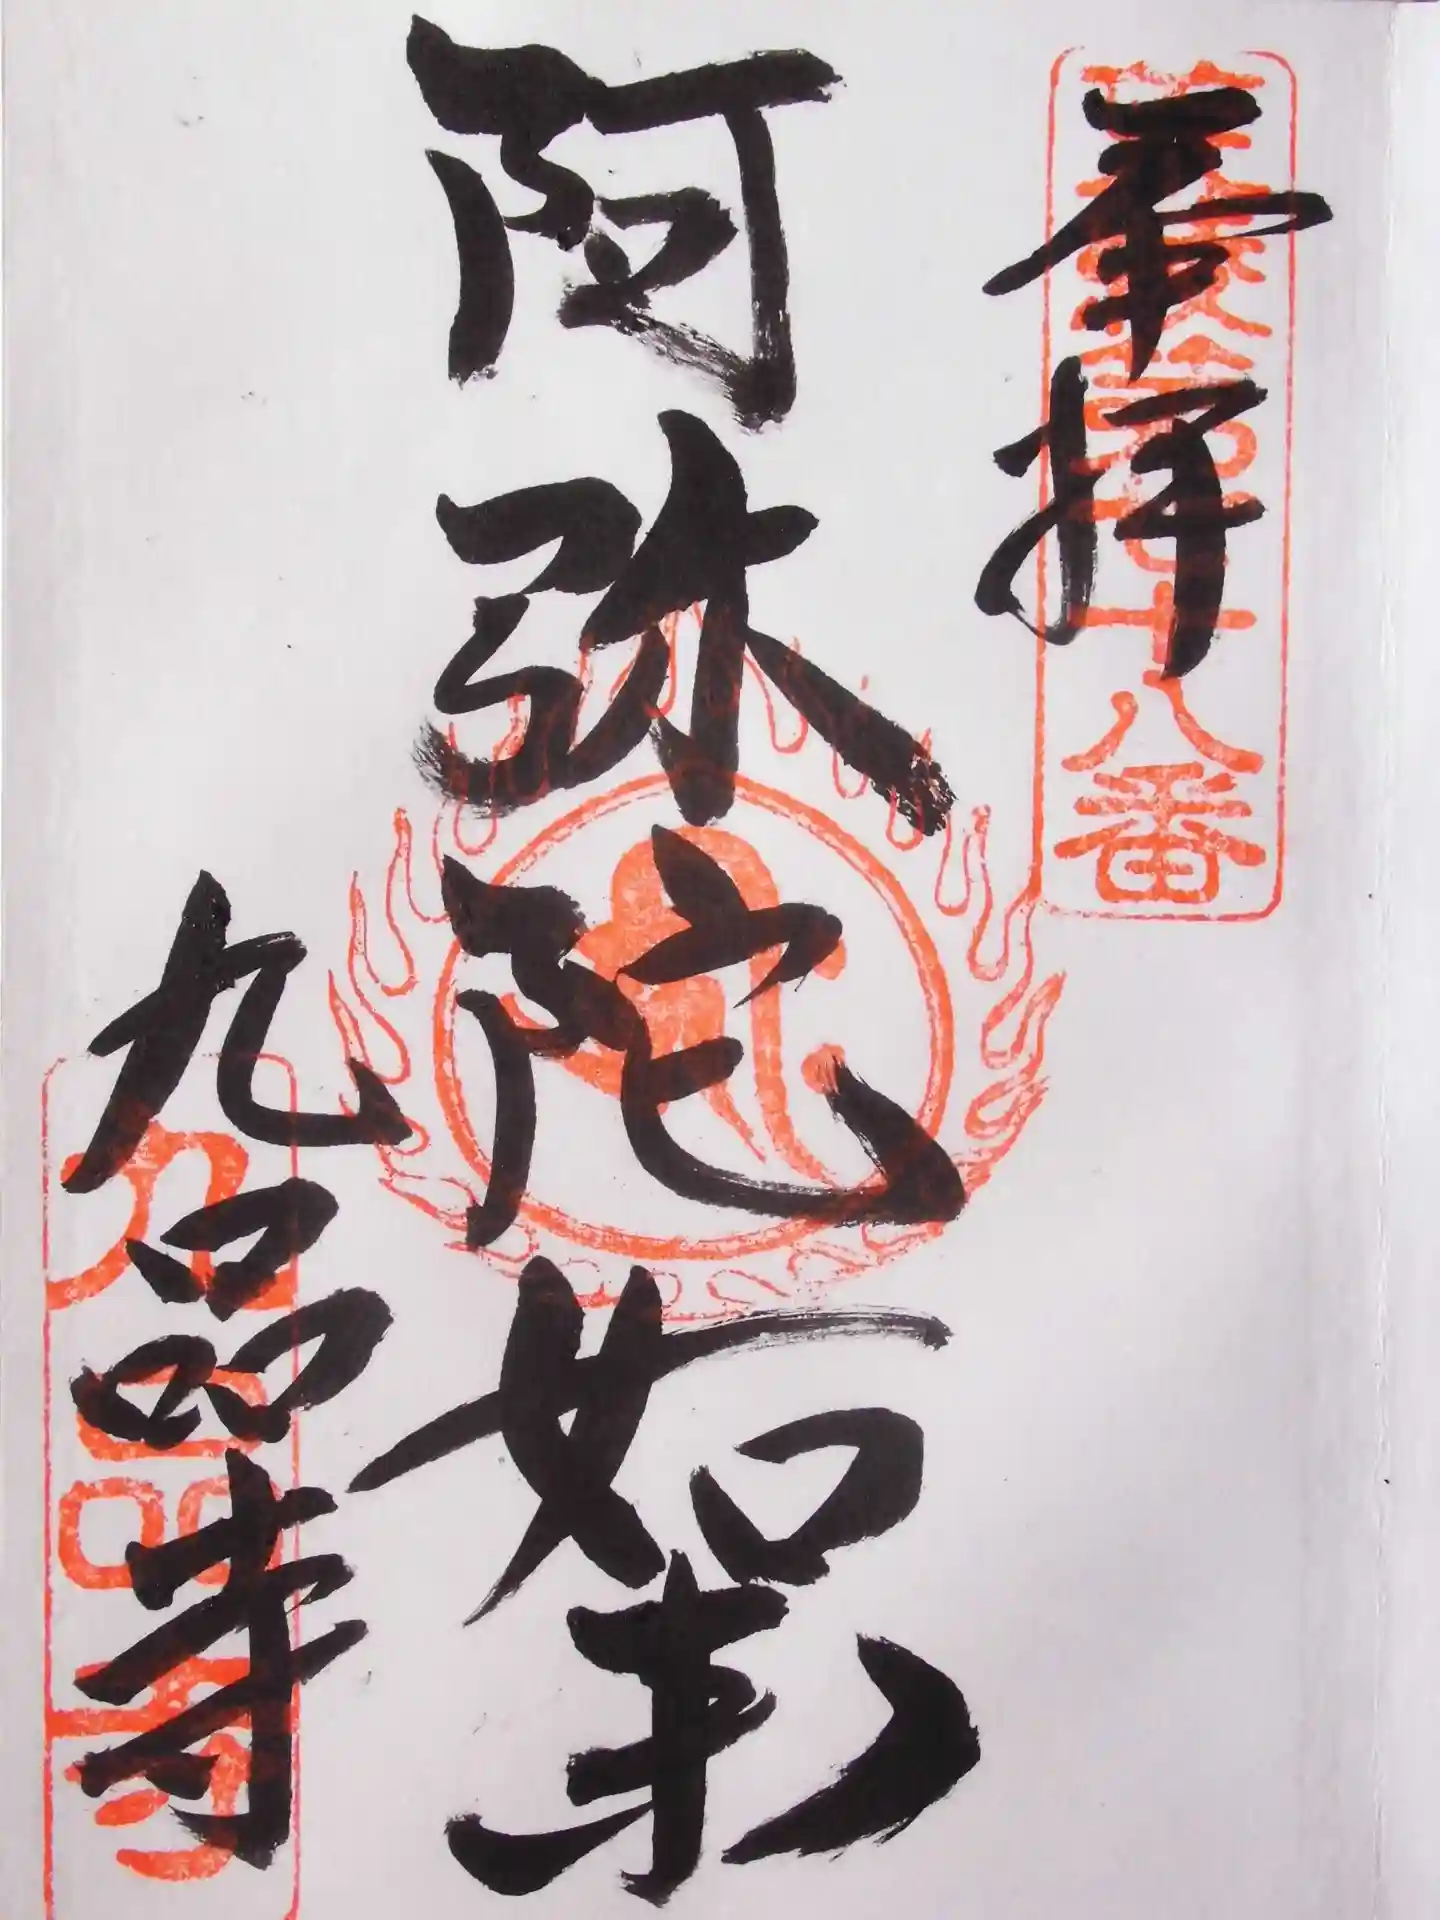 奉拝
阿弥陀如来
九品寺
十八番
九品寺